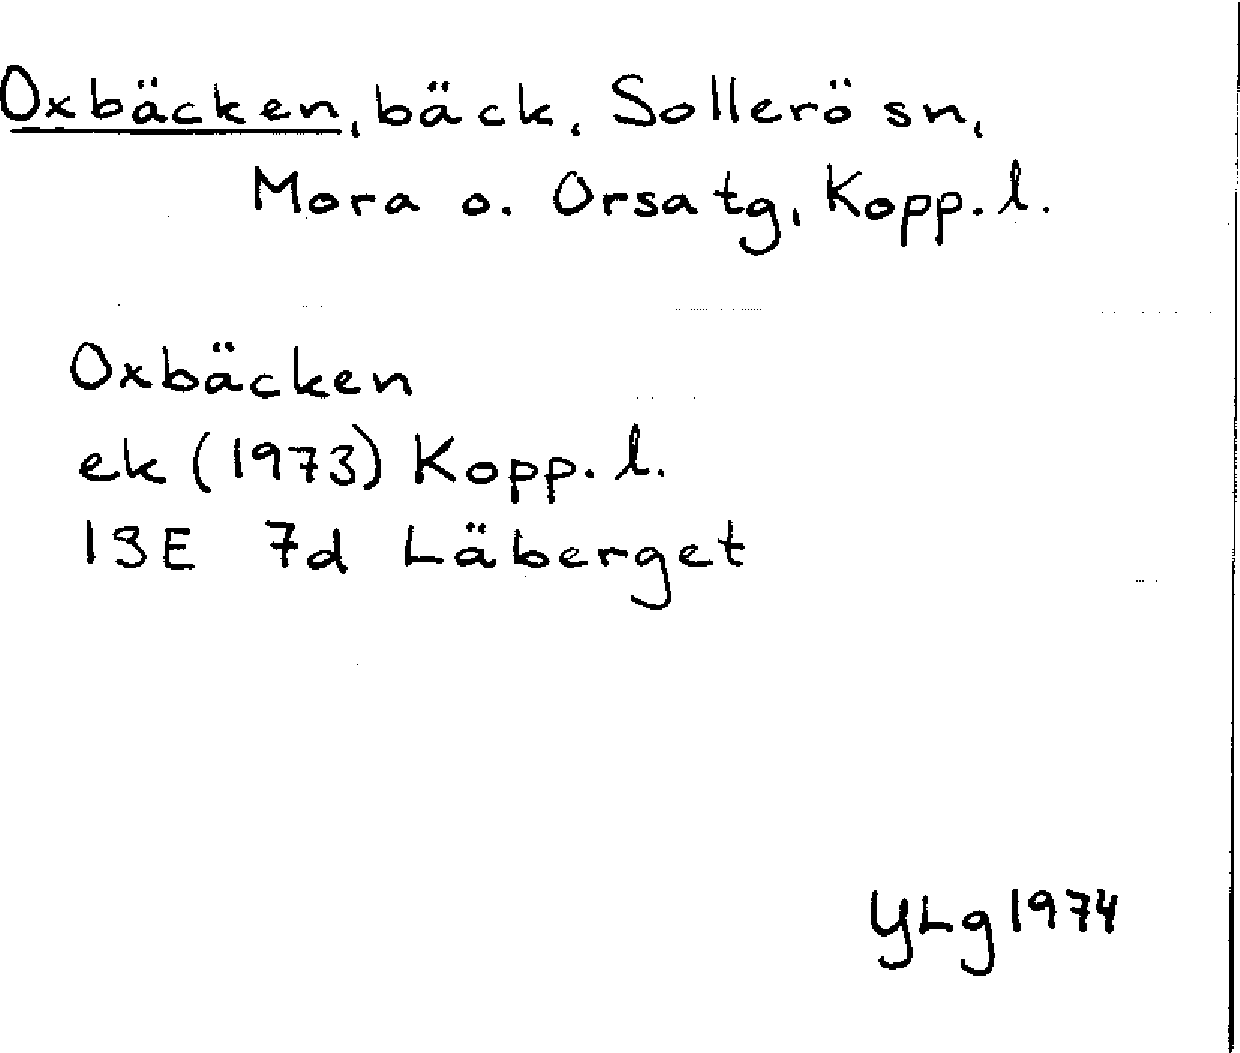 Oxbäcken, bäck, Sollerö sn,
Mora o. Orsa tg, Kopp. l.
Oxbäcken
ek (1973) Kopp. l.
13E 7d Läberget
YLg 1974